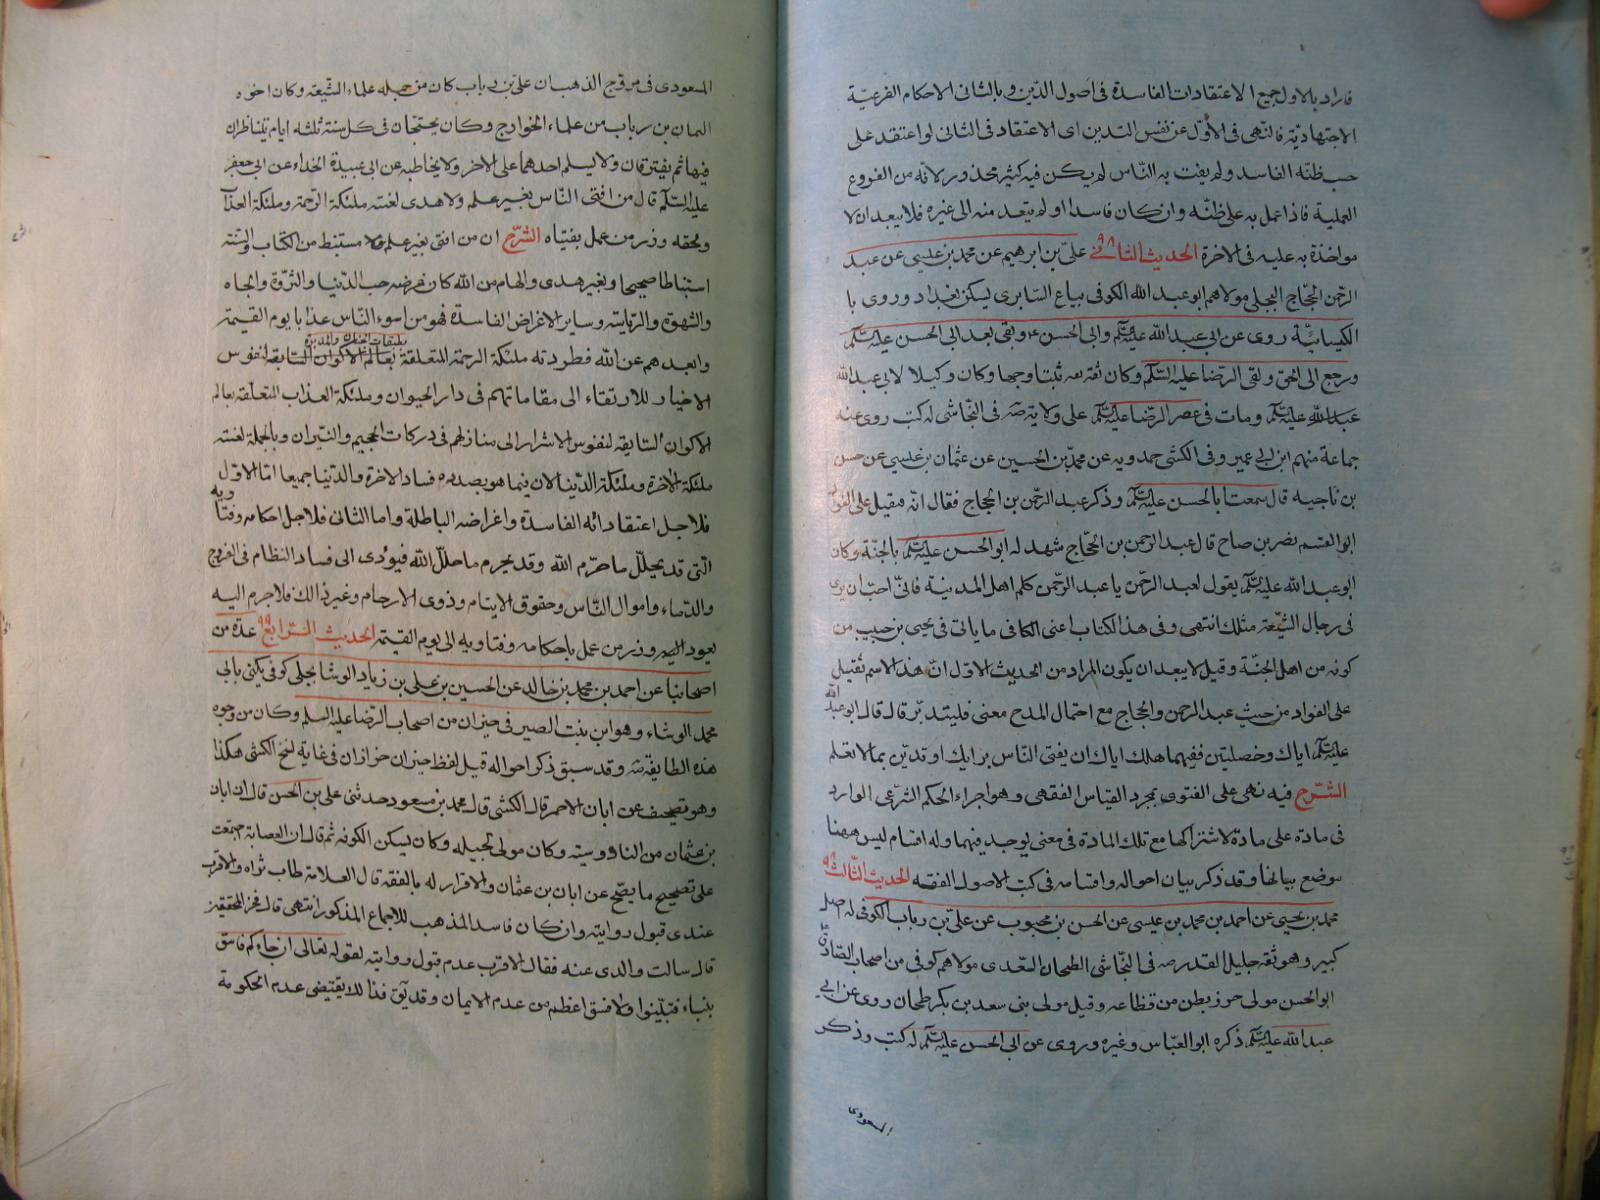 فاراد بالاول جميع الاعتقادات الفاسدة فى اصول الدّين وبالثانى الاحكام الفرعيّة
الاجتهاديّة فالنّهى فى الأوّل عن نفس التدين اى الاعتقاد فى الثانى لو اعتقد على
حسب ظنّه الفاسد ولم يفت به النّاس لم يكن فيه كثير محذور لانّه من الفروع
العملية فاذا عمل به على ظنّه وان كان فاسدا او لم يتعد منه الى غيره فلا يبعد ان لا
مواخذة به عليه فى الاخرة الحديث الثانى ٩٨ علىّ بن ابرهيم عن محمد بن عليسى عن عبد
الرّحمن الحجّاج البجلى مولاهم ابو عبد الله الكوفى بياع السّابرى ليسكن بغداد وروى با
الكيسانيّة روى عن ابى عبد الله عليه السّلم وابى الحسن ع وبقى بعد ابى الحسن عليه السّلم
ورجع الى الحق ولقى الرّضا عليه السّلم وكان ثقه ثقه ثبتا وجها وكان وكيلا لابى عبد الله
عبد الله عليه السّلم ومات فى عصر الرّضا عليه السّلم على ولايته صه فى النّجاشى له كتب روى عنه
جماعة منهم ابن ابى عمير وفى الكشى حمدويه عن محمّد بن الحسين عن عثمان بن عليسى عن حسن
بن ناجيه قال سمعت ابا الحسن عليه السّلم وذكر عبد الرّحمن بن الحجاج فقال انّه مقيل على الفواد
ابو القسم نصر بن صاح قال عبد الرّحمن بن الحجّاج شهد له ابو الحسن عليه السّلم بالجنّة وكان
ابو عبد الله عليه السّلم يقول لعبد الرّحمن يا عبد الرّحمن كلم اهل المدينة فانّى احبّ ان يرى
فى رجال الشّيعة مثلك انتهى وفى هذ الكتاب اعنى الكافى ما ياتى فى يحيى بن حبيب من
كونه من اهل الجنّة وقيل لا يبعد ان يكون المراد من الحديث الاوّل انّ هذ الاسم ثقيل
على الفواد من حيث عبد الرحمن والحجاج مع احتمال المدح معنى فليتدبّر قال قال ابو عبد الله
عليه السّلم اياك وخصلتين ففيهما هلك اياك ان يفتى النّاس برايك او تدين بما لا تعلم
الشّرح فيه نهى على الفتوى بمجرد القياس الفقهى وهو اجراء الحكم الشّرعى الوارد
فى مادة على مادة لاشتراكها مع تلك المادة فى معنى يوجد فيهما وله اقسام ليس ههنا
موضع بيانها وقد ذكر بيان احواله واقسامه فى كتب الاصول الفقه الحديث الثّالث ٩٨
محمد بن يحيى عن احمد بن محمد بن عيسى عن الحسن بن محبوب عن علىّ بن رباب الكوفى له اصل
كبير وهو ثقه جليل القدر صه فى النّجاشى الطحان السّعدى مولاهم كوفى من اصحاب الصّادق ع
ابو الحسن مولى حرز بطن من قظاعه وقيل مولى بنى سعد بن بكر طحان روى عن ابى
عبد الله عليه السّلم ذكره ابو العبّاس وغيره وروى عن ابى الحسن عليه السّلم له كتب وذكر
المسعودى
المسعودى فى مروّج الذهب ان علىّ بن رباب كان من جمله علماء الشّيعة وكان اخوه
اليمان بن رباب من علماء الخوارج وكان يجتمعان فى كل سنة ثلثه ايام يتناظران
فيها ثم يفترقان ولا يسلم احدهما على الاخر ولا يخاطبه عن ابى عبيدة الحذاء عن ابى جعفر
عليه السّلم قال من افتى النّاس بغير علم ولا هدى لعنته ملئكة الرّحمة وملئكة العذاب
ولحقه وزر من عمل بفتياه الشّرح ان من افتى بغير علم مستنبط من الكتاب والسّنّة
استنباطا صحيحا وبغير هدى والهام من الله كان غرضه حب الدّنيا والثّروة والجاه
والشهوة والرياية وساير الاغراض الفاسدة فهو من اسوء النّاس عذابا يوم القيمة
وابعدهم عن الله فطردته ملئكة الرحمة المتعلقة بعالم الاكوان السّابقه لنفوس
الاخيار للارتقاء الى مقاماتهم فى دار الحيوان وملئكة العذاب المتعلّقه بعالم
الاكوان السّايقه لنفوس الاشرار الى منازلهم فى دركات الجحيم والنّيران وبالجملة لعنته
ملئكة الاخرة وملئكة الدّنيا لان فيما هو بصدده فساد الاخرة والدّنيا جميعا امّا الاوّل
فلاجل اعتقاداته الفاسدة واغراضه الباطلة واما الثانى فلاجل احكامه وفتاويه
الّتى قد يحيلّل ما حرّم الله وقد يحرم ما حلّل الله فيؤدى الى فساد النظام فى الفروج
والدّماء واموال النّاس وحقوق الايتام وذوى الارحام وغير ذالك فلا جرم اليه
يعود اليه وزر من عمل باحكامه وفتاويه الى يوم القيمة الحديث الرّابع ٩٩ عدّة من
اصحابنا عن احمد بن محمد بن خالد عن الحسين بن على بن زياد الوشا بجلى كوفى يكنى بابى
محمد الوشاء وهو ابن بنت الصير فى حيزان من اصحاب الرّضا عليه السلم وكان من وجوه
هذه الطايفة صه وقد سبق ذكر احواله قيل لفظ حيزان خزاز ان فى غاية نسخ الكشى هكذا
وهو تصحيف عن ابان الاحمر قال الكشى قال محمد بن مسعود حدثنى على بن الحسن قال ان ابان
بن عثمان من الناووسية وكان مولى لجيله وكان ليسكن الكوفه ثم قال ان العصابة اجمعت
على تصحيح ما يصحّ عن ابان بن عثمان والاقرار له بالفقه قال العلامة طاب ثراه والاقرب
عندى قبول روايته وان كان فاسد المذهب للاجماع المذكور انتهى قال فخر المحققين
قال سالت والدى عنه فقال الاقرب عدم قبول روايته لقوله تعالى ان جاءكم فاسق
بنباء فتبيّنوا ولا فسق اعظم من عدم الايمان وقد يق هذا لا يقتضى عدم الحكومة